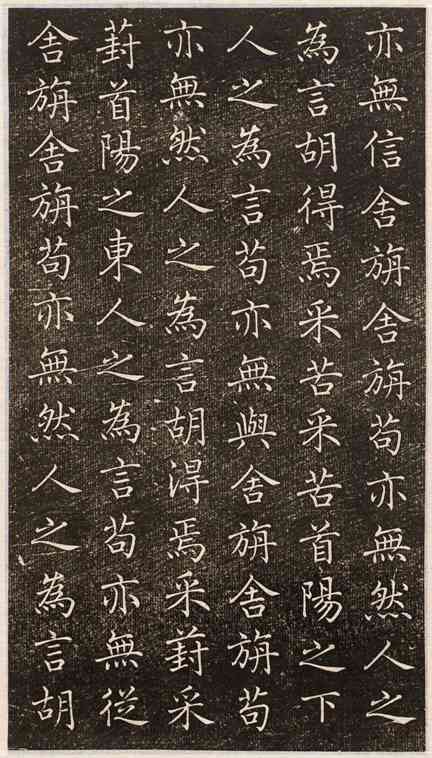 亦無信舍旃舍旃苟亦無然人之
為言胡得焉采苦采苦首陽之下
人之為言苟亦無與舍旃舍旃苟
亦無然人之為言胡得焉采葑采
葑首陽之東人之為言苟亦無從
舍旃舍旃苟亦無然人之為言胡